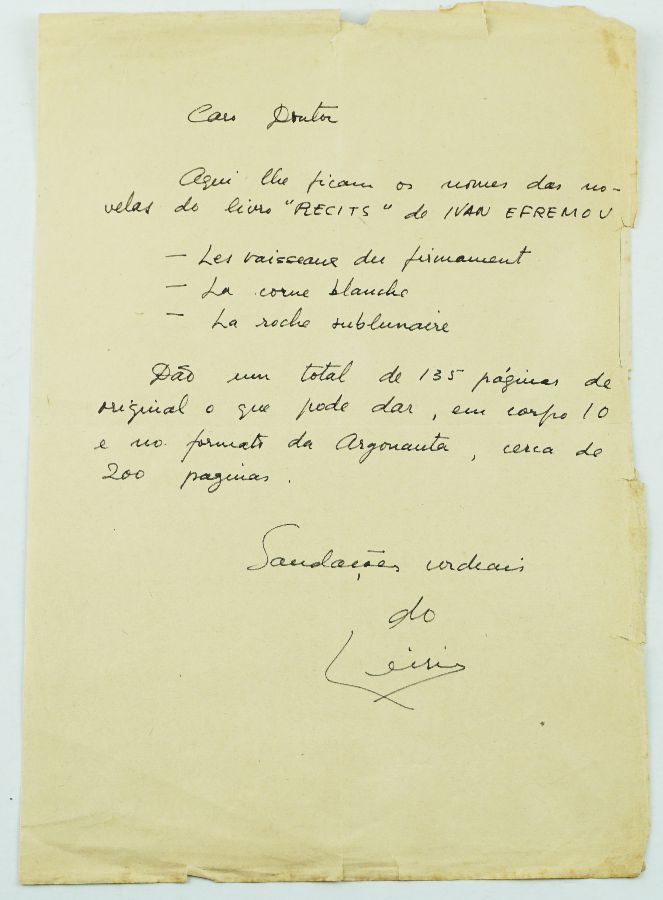 Caro Doutor
Aqui lhe ficam os nomes das no-
velas do livro "RECITS" de IVAN EFREMOV
- Les vaisseaux du firmament
- La corne blanche
- La roche sublunaire
Dão um total de 135 páginas de
original o que pode dar, em corpo 10
e no formato da Argonauta, cerca de
200 paginas.
Saudações cordiais
do